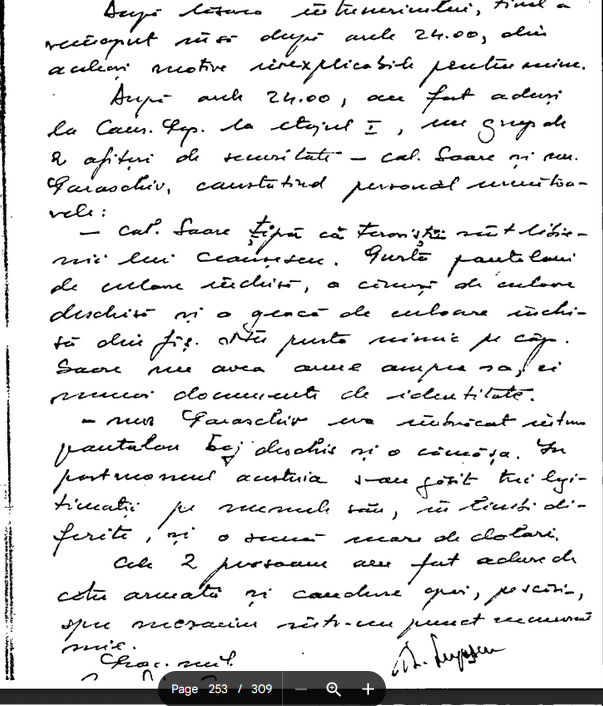 După lăsarea întunericului, tirul a
reînceput însă după orele 24.00, din
aceleași motive inexplicabile pentru mine.
După orele 24.00, au fost aduși
la la etajul I, un grup de
2 ofițeri de securitate – col. Soare și mr.
Paraschiv, constatînd personal următoa-
rele:
– col. Soare țipă că teroriștii sînt libie-
nii lui Ceaușescu. Purta pantaloni
de culoare închisă, o cămașă de culoare
deschisă și o geacă de culoare închi-
să din fîș. Nu purta nimic pe cap.
Soare nu avea arme asupra sa, ci
numai documente de identitate.
– Paraschiv era îmbrăcat într-un
pantalon bej deschis și o cămașă. În
portmoneul acestuia s-au găsit trei legi-
timații pe numele său, în limbi di-
ferite, și o sumă mare de dolari.
Cele 2 persoane au fost aduse de
către armată și conduse apoi, pe scări,
spre mezanin într-un punct necunoscut
mie.
mil.
Page 253 / 309